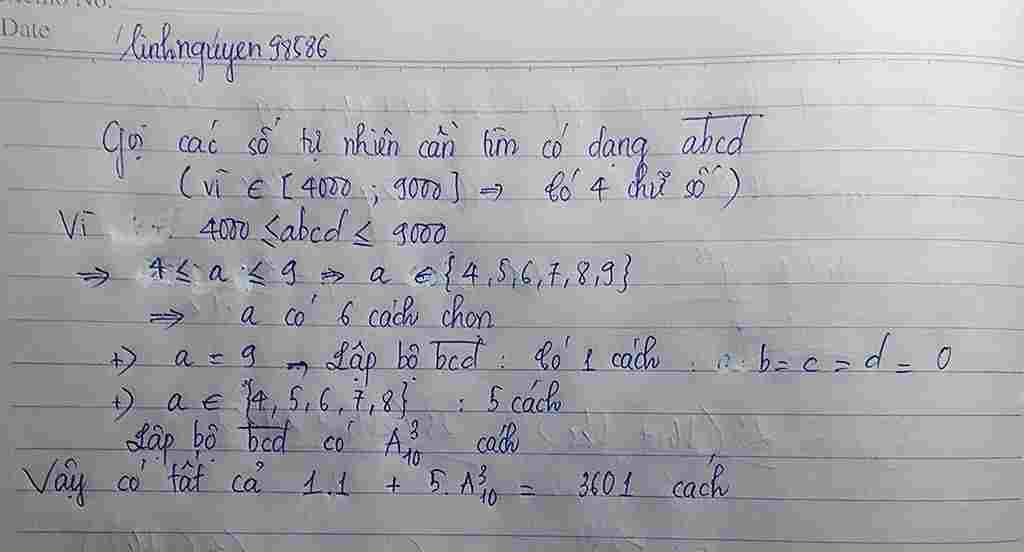 Date
linhnguyen98586
Gọi các số tự nhiên cần tìm có dạng abcd
(vì ∈ [4000 ; 9000] ⇒ Có 4 chữ số)
Vì 4000 ≤ abcd ≤ 9000
⇒ 4 ≤ a ≤ 9 ⇒ a ∈ {4,5,6,7,8,9}
⇒ a có 6 cách chọn
+) a = 9 → Lập bộ bcd : Có 1 cách : b = c = d = 0
+) a ∈ {4, 5, 6, 7, 8} : 5 cách
Lập bộ bcd có A³₁₀ cách
Vậy có tất cả 1.1 + 5.A³₁₀ = 3601 cách